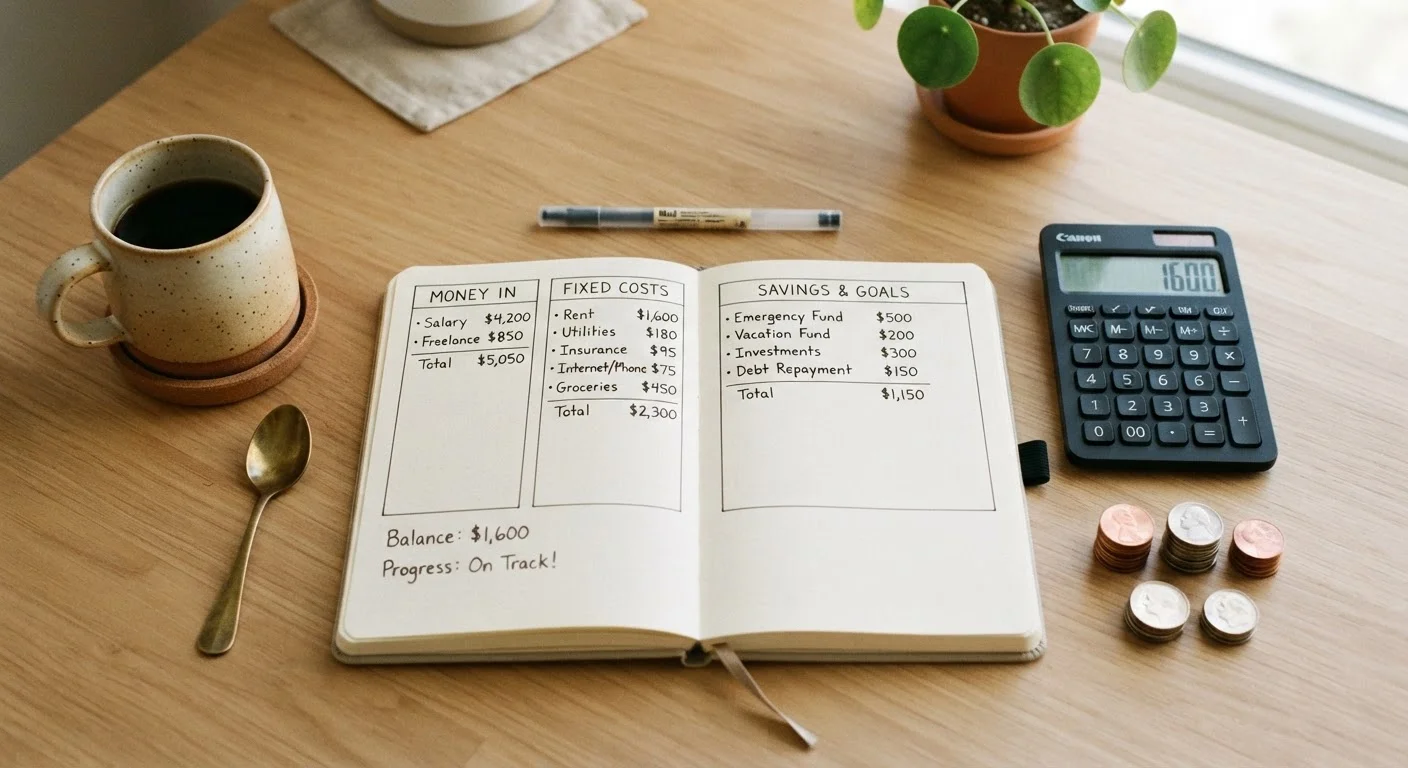 MONEY IN
• Salary $4,200
• Freelance $850
Total $5,050
FIXED COSTS
• Rent $1,600
• Utilities $180
• Insurance $95
• Internet/Phone $75
• Groceries $450
Total $2,300
Balance: $1,600
Progress: On Track!
SAVINGS & GOALS
• Emergency Fund $500
• Vacation Fund $200
• Investments $300
• Debt Repayment $150
Total $1,150
Canon
1600.
M- M- M+ ÷
7 8 9 9 ×
4 5 6 6 −
1 2 3 3 +
0 00 · =